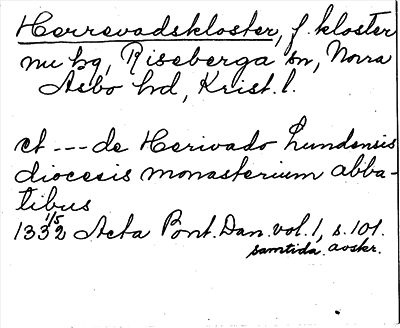 Herrevadskloster, f. kloster
nu hg, Riseberga sn, Norra
Åsbo hd, Krist. l.
et --- de Herivado Lundensis
diocesis monasterium abba-
tibus
1332 1/5 Acta Pont. Dan. vol. 1, s. 101.
samtida avskr.